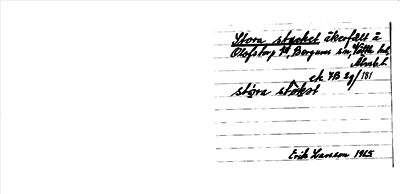 Stora stycket åkerfält å
Olofstorp 1⁸, Bergums sn, Vättle hd,
Älvsb l.
ek 7B 2g/181
stora støkət
Erik Larsson 1965